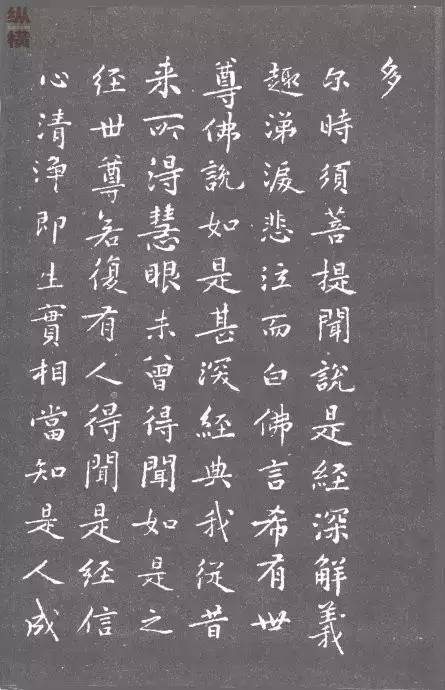 多
尔時須菩提聞說是經深解義
趣涕淚悲泣而白佛言希有世
尊佛說如是甚深經典我從昔
来所得慧眼未曾得聞如是之
経世尊若復有人得聞是経信
心清淨即生實相當知是人成
纵横